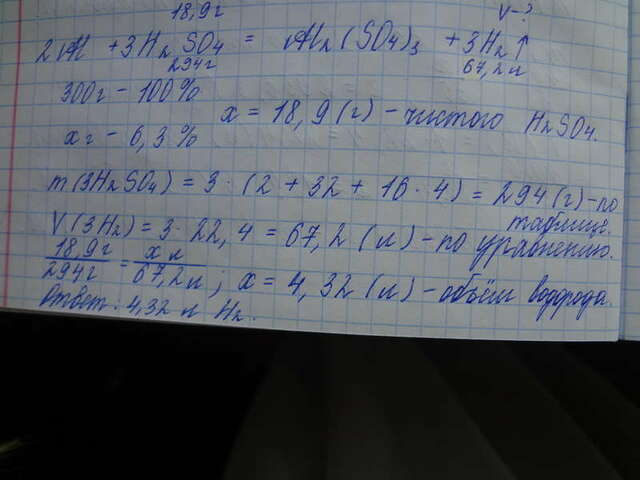 18,9г V-?
2Al + 3H₂SO₄ = Al₂(SO₄)₃ + 3H₂↑
294г 67,2л
300г - 100%
x = 18,9(г) - чистого H₂SO₄.
xг - 6,3%
m(3H₂SO₄) = 3·(2+32+16·4) = 294(г) - по
таблице.
V(3H₂) = 3·22,4 = 67,2(л) - по уравнению.
18,9г/294г = xл/67,2л; x = 4,32(л) - объём водорода.
Ответ: 4,32 л H₂.